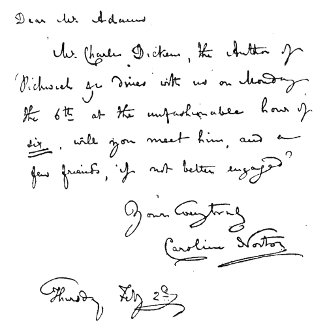 Dear Mr Adams
Mr Charles Dickens, the Author of
Pickwick &c dines with us on Monday
the 6th at the unfashionable hour of
six, will you meet him, and a
few friends, if not better engaged?
Yours truly
Caroline Norton
Thursday Feby 2d